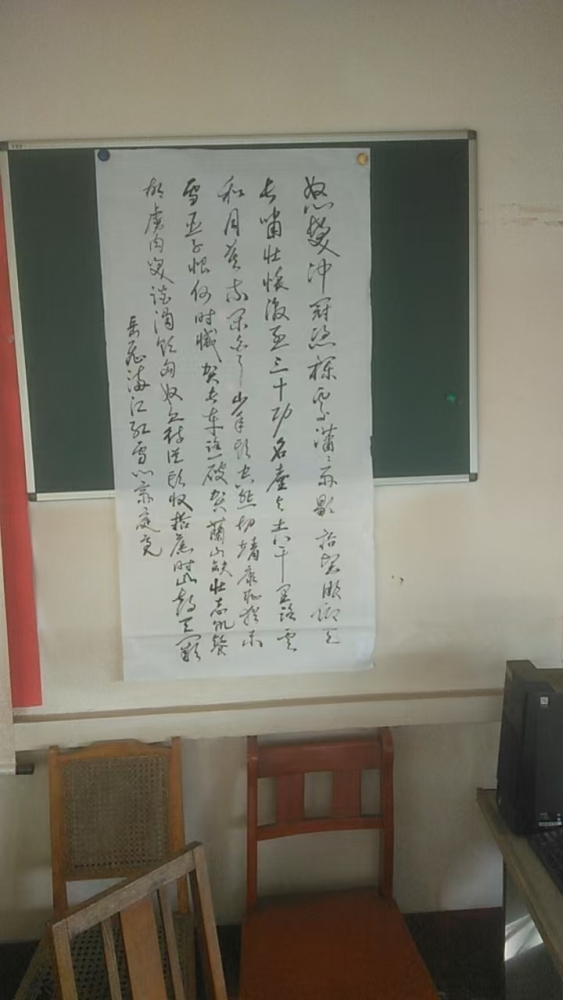 怒髮冲冠凭栏处潇潇雨歇抬望眼仰天
长啸壮怀激烈三十功名尘与土八千里路云
和月莫等闲白了少年头空悲切靖康耻犹未
雪臣子恨何时灭驾长车踏破贺兰山缺壮志饥餐
胡虏肉笑谈渴饮匈奴血待从头收拾旧山河朝天阙
岳飞满江红